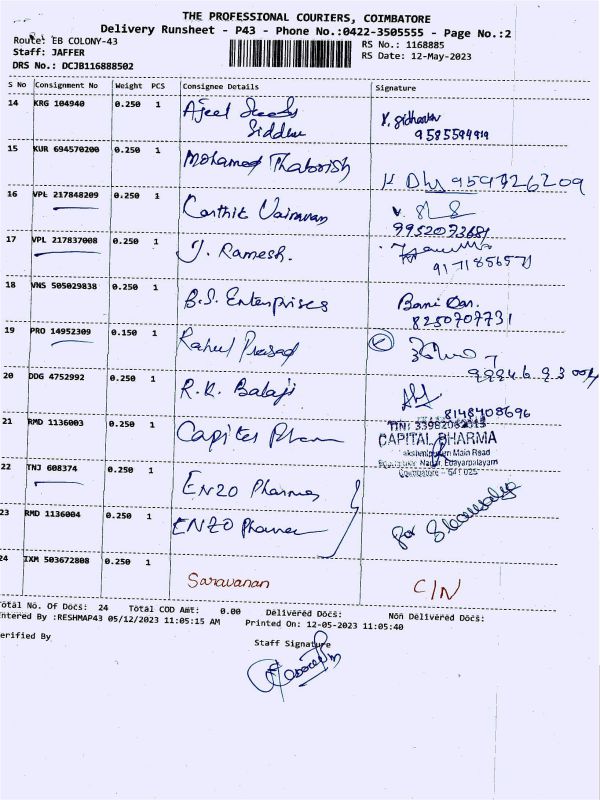 THE PROFESSIONAL COURIERS, COIMBATORE
Delivery Runsheet - P43 - Phone No.:0422-3505555 - Page No.:2
Route: EB COLONY-43
RS No.: 1168885
Staff: JAFFER
RS Date: 12-May-2023
DRS No.: DCJB116888502
S No Consignment No Weight PCS Consignee Details Signature
14 KRG 104940 0.250 1 Ajeet Seeds
Siddhu
9585594919
15 KUR 694570200 0.250 1 Mohamed
9597726209
16 VPL 217848209 0.250 1 Karthik Vairavan
9952073681
17 VPL 217837008 0.250 1 J. Ramesh.
917185657
18 VNS 505029838 0.250 1 B.S. Enterprises
8250707731
19 PRO 14952309 0.150 1 Rahul Prasad
20 DDG 4752992 0.250 1 R.R. Balaji
8148408696
21 RMD 1136003 0.250 1 Capital Pharm
CAPITAL PHARMA
Main Road
Nagar, Edayarpalayam
Coimbatore - 641 025
22 TNJ 608374 0.250 1 ENZO Pharma
23 RMD 1136004 0.250 1 ENZO Pharma
for
24 IXM 503672808 0.250 1 Saravanan C/N
Total No. Of Docs: 24 Total COD Amt: 0.00 Delivered Docs: Non Delivered Docs:
Entered By :RESHMAP43 05/12/2023 11:05:15 AM Printed On: 12-05-2023 11:05:40
Verified By Staff Signature